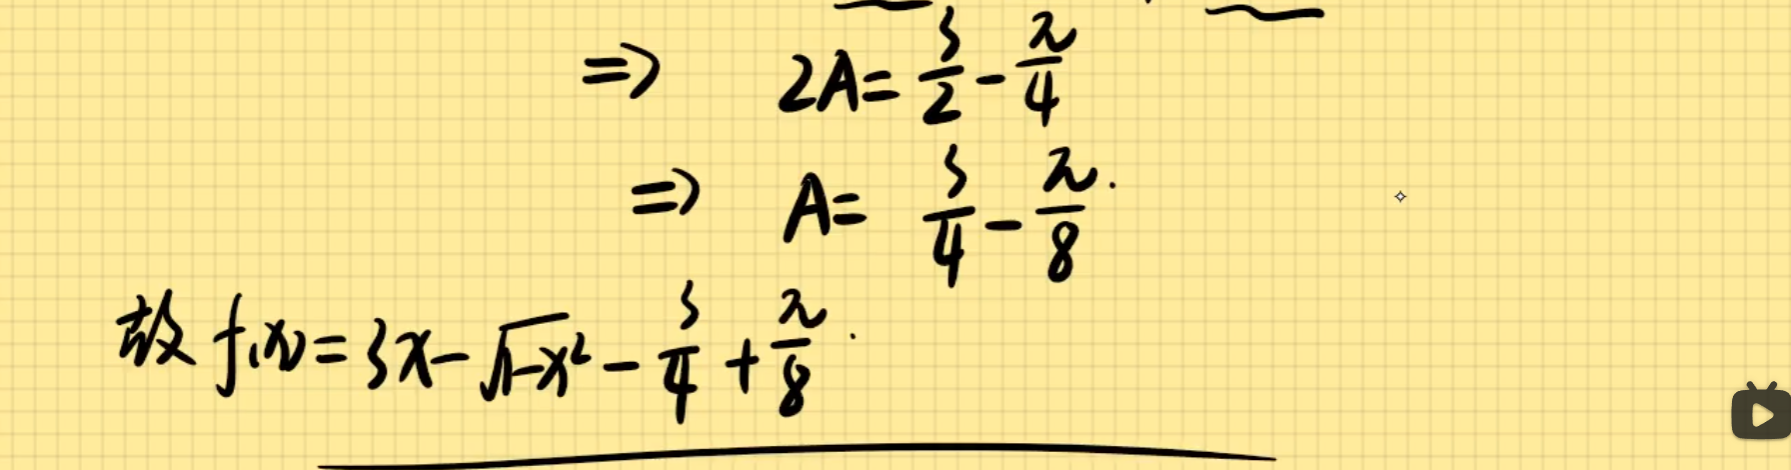 ⇒ 2A = 3/2 - π/4
⇒ A = 3/4 - π/8.
故 f(x) = 3x - √(1-x²) - 3/4 + π/8.